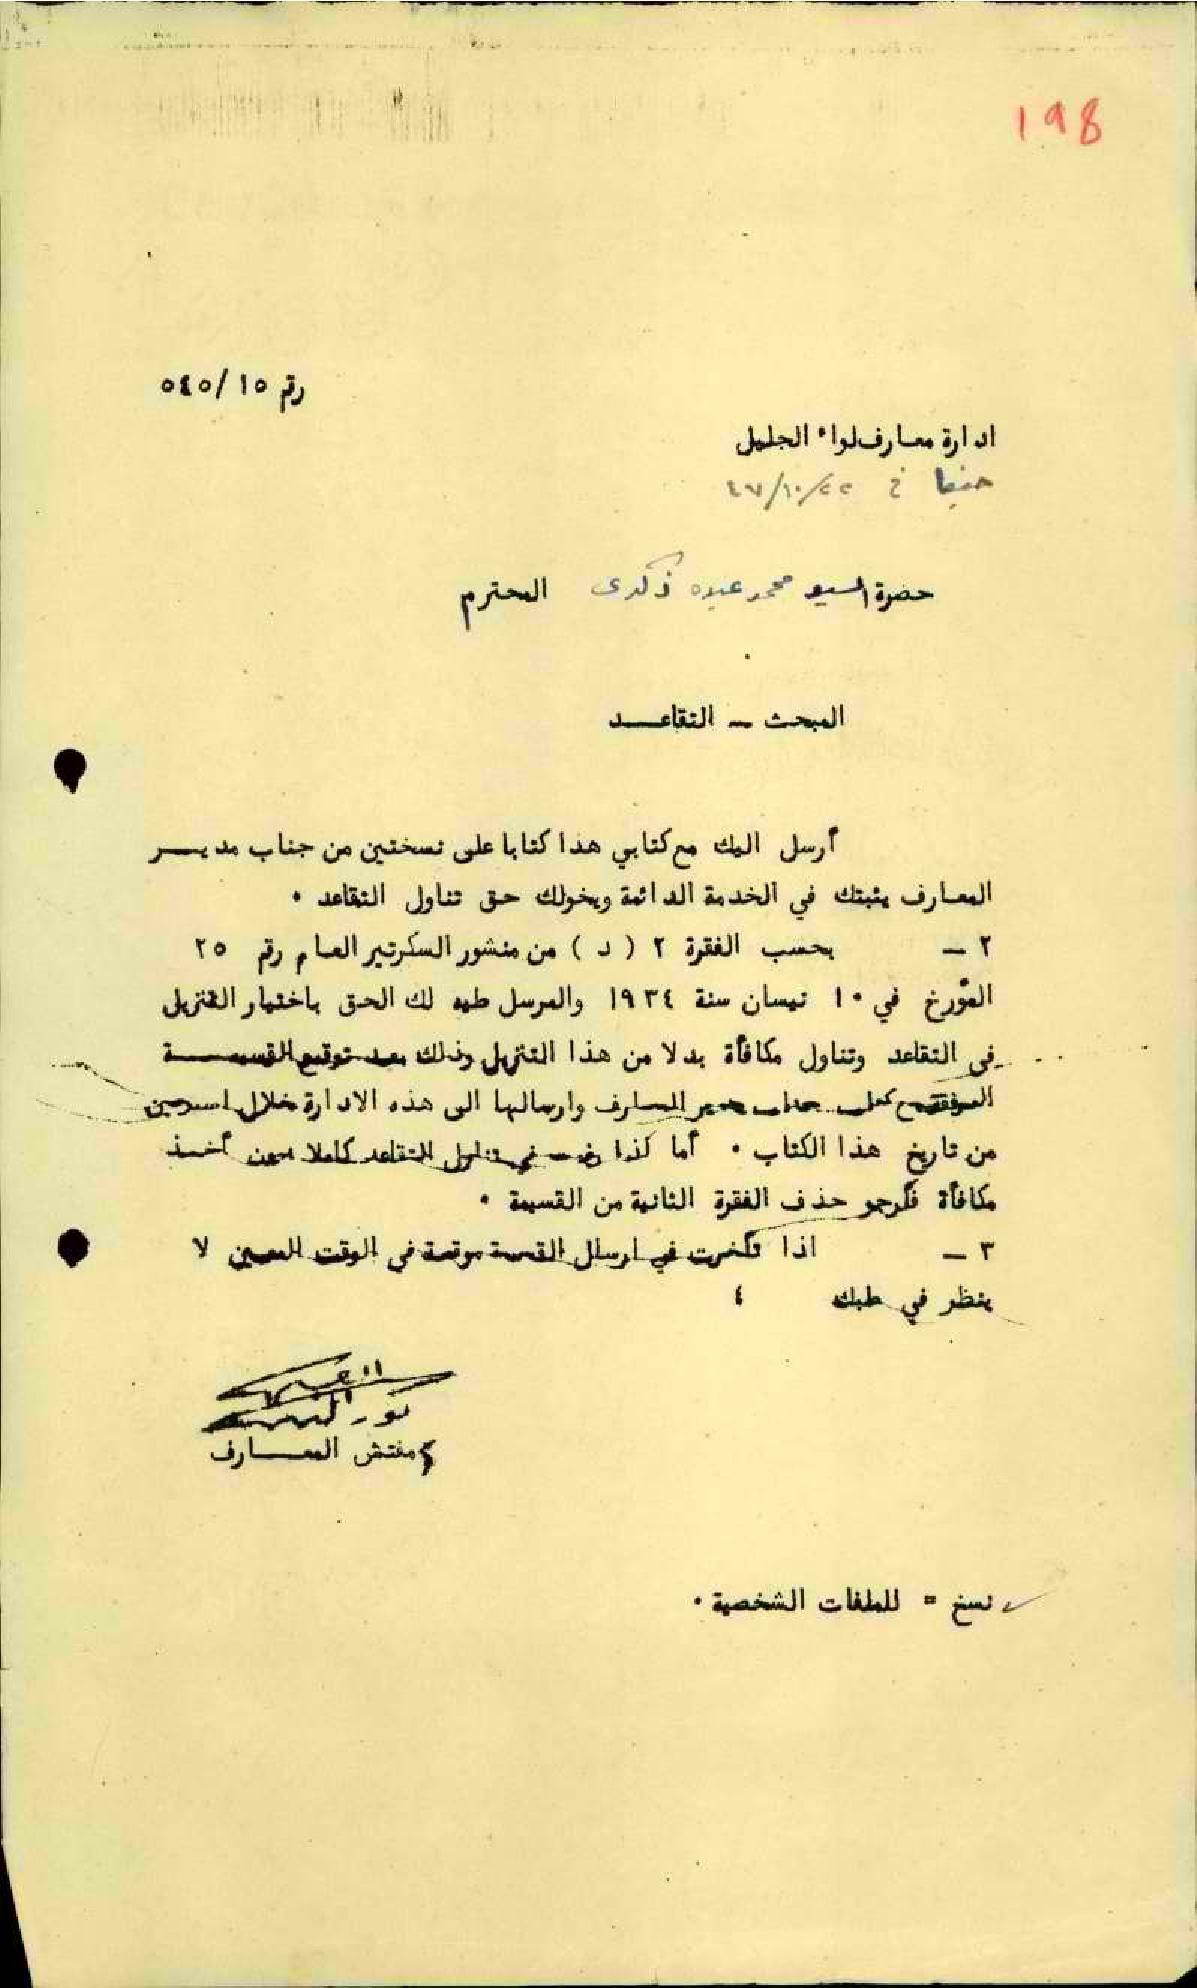 198
رقم ١٥/٥٤٥
ادارة معارف لواء الجليل
حيفا في ٢٢/١٠/٤٧
حضرة السيد محمد عبده ذكرى المحترم
المبحث — التقاعد
أرسل اليك مع كتابي هذا كتابا على نسختين من جناب مدير
المعارف يثبتك في الخدمة الدائمة ويخولك حق تناول التقاعد ٠
٢ — بحسب الفقرة ٢ ( د ) من منشور السكرتير العام رقم ٢٥
المؤرخ في ١٠ نيسان سنة ١٩٣٤ والمرسل طيه لك الحق باختيار التنزيل
في التقاعد وتناول مكافأة بدلا من هذا التنزيل وذلك بعد توقيع القسيمة
المرفقة مع كتاب جناب مدير المعارف وارسالها الى هذه الادارة خلال اسبوعين
من تاريخ هذا الكتاب ٠ أما اذا رغبت في تناول التقاعد كاملا بدون أخذ
مكافأة فأرجو حذف الفقرة الثانية من القسيمة ٠
٣ — اذا تأخرت في ارسال القسيمة موقعة في الوقت المعين لا
ينظر في طلبك ٤
مفتش المعارف
نسخ = للملفات الشخصية ٠